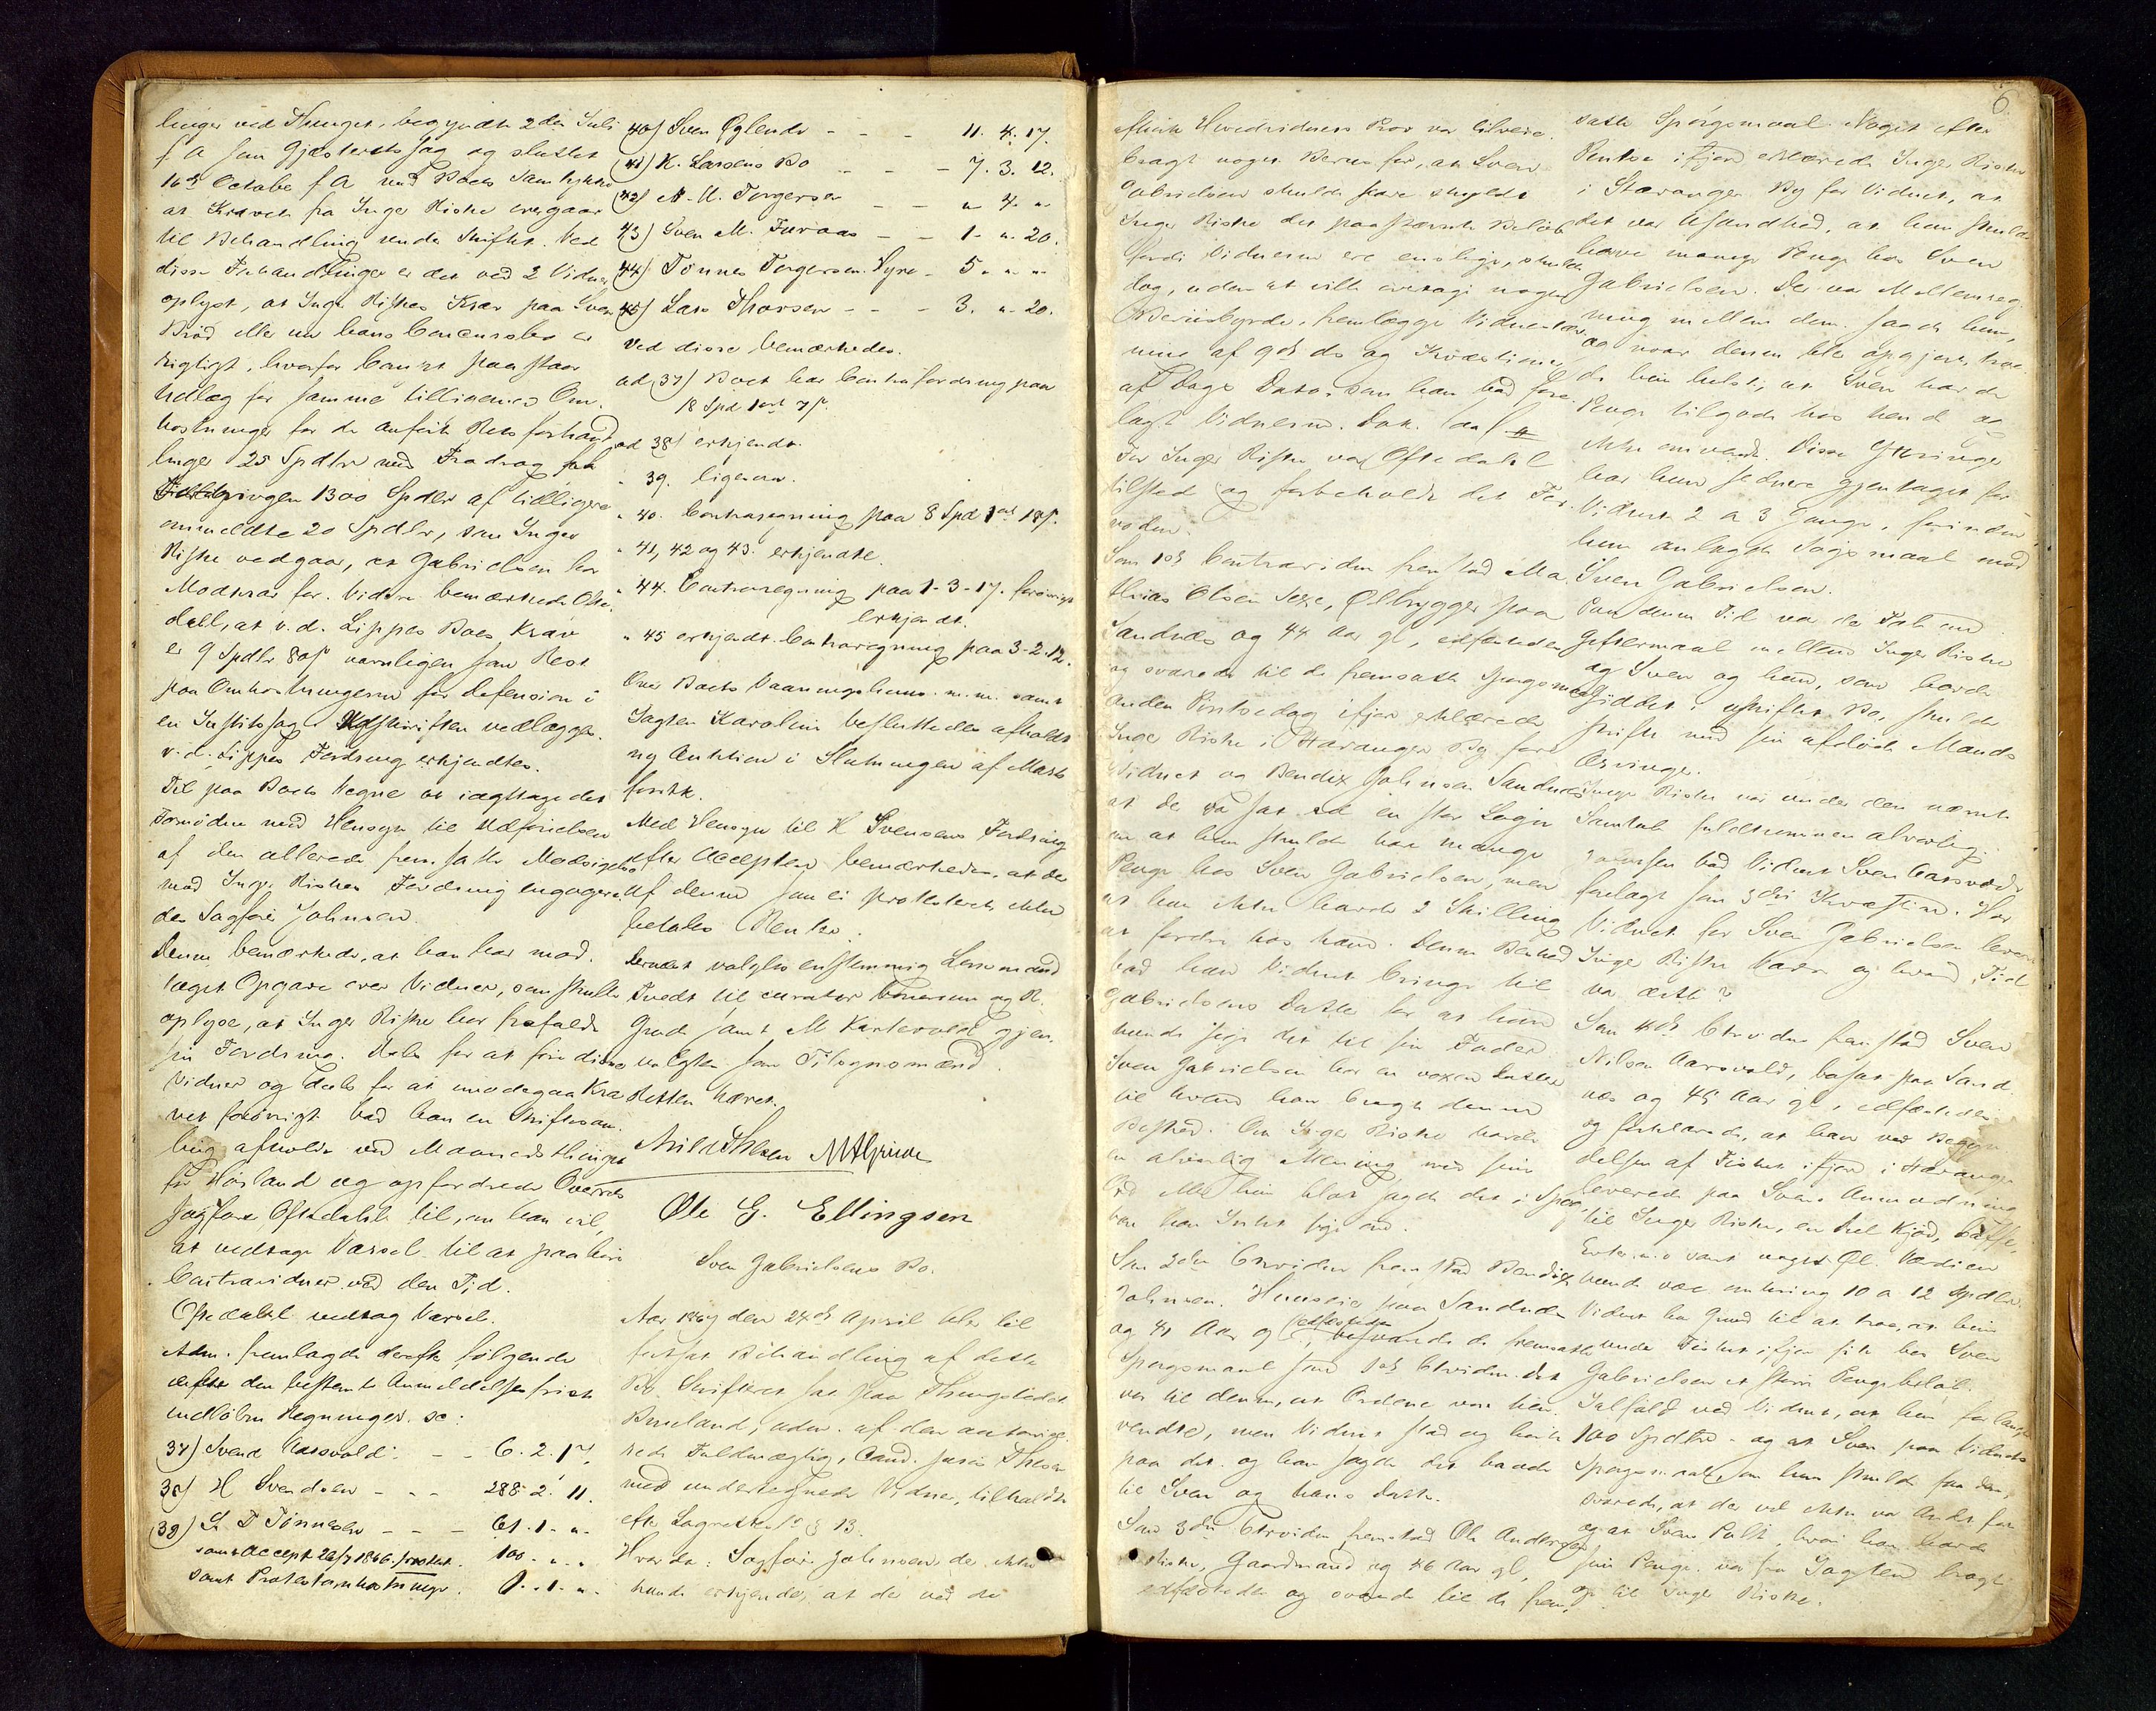 linger ved Thinget, begyndt 2den Juli
f A som Gjæsteretssag og sluttet
16de Octobe f A med Boets Samtykke
at Kravet fra Inger Riske overgaar
til Behandling under Skiftet. Ved
disse Forhandlinger er det ved 2 Vidner
oplyst, at Inger Riskes Krav paa Sven
Brød eller nu hans Concursbo er
rigtigt, hvorfor Comp. paastaar
Udlæg for samme tilligemed Om-
kostninger for de anførte Retsforhand
linger 25 Spdlr med Fradrag fra
Fordringen 1300 Spdlr af tidligere
anmeldte 20 Spdlr, som Inger
Riske vedgaar, at Gabrielsen har
Modkrav for. Videre bemærkede Ofte-
dahl, at v. d. Lippes Boes Krav
er 9 Spdlr 80 s navnligen som Rest
paa Omkostningerne for Defension i
en Justitssag. Udskriften vedlægges.
v. d. Lippes Fordring erkjendtes.
Til paa Boets Vegne at iagttage det
Fornødne med Hensyn til Udførelsen
af den allerede fremsatte Modsigelse
mod Inger Riskes Fordring engagere-
des Sagfører Johnsen.
Denne bemærkede, at han har mod-
taget Opgave over Vidner, som skulle
oplyse, at Inger Riske har frafaldt
sin Fordring. Dels for at føre disse
Vidner og dels for at imødegaa Kra
vet forøvrigt bad han en Skiftesam-
ling afholdt ved Maanedsthinget
for Høiland og opfordrede Overrets
sagfører Oftedahl til, om han vil,
at vedtage Varsel til at paahøre
Contravidner ved den Tid.
Oftedahl vedtog Varsel.
Adm. fremlagde derefter følgende
efter den bestemte Anmeldelsesfrist
indløbne Regninger. sc:
37) Svend Aarsvold - - 6. 2. 17.
38) H Svendsen - - - 288. 2. 11.
39) S. T Tønnesen - - - 61. 1. "
samt Accept 26/7 1866. protest. 100. " "
samt Protestomkostninger. 1. 1. "
40) Sven Oglende - - - 11. 4. 17.
41) K. Larsens Bo - - - 7. 3. 12.
42) M. M. Torgersen - - " 4. "
43) Sven M. Furaas - - 1. " 20.
44) Tønnes Torgersen Lyre - 5. " "
45) Lars Thorsen - - - 3. " 20.
Ved disse bemærkedes.
ad 37) Boet har Contrafordring paa
18 Spd 1 ort 7 s.
ad 38) erkjendt.
" 39. ligesaa.
" 40. Contraregning paa 8 Spd 1 ort 18 s.
" 41, 42 og 43. erkjendte.
" 44. Contraregning paa 1-3-17. forøvrigt
erkjendt.
" 45 erkjendt. Contraregning paa 3.2.12.
Over Boets Vaaningshuus m. m. samt
Jagten Karoline besluttedes afholdt
ny Auktion i Slutningen af Marts
førstk.
Med Hensyn til H Svensens Fordring
efter Accepten bemærkedes, at der
af denne som ei protesteret ikke
betales Rente.
Dernæst valgtes enstemmig Lensmand
Tvedt til curator bonorum og R.
Grude samt M Kartevold gjen-
valgtes som Tilsynsmænd.
Retten hævet.
Arild Thlsen M A Grude
Ole G. Ellingsen
Sven Gabrielsens Bo.
Aar 1867 den 24de April blev til
fortsat Behandling af dette
Bo Skifteret sat paa Thingstedet
Buseland, adm. af den autorise-
rede Fuldmægtig, Cand. juris Thlsen
med undertegnede Vidne, tilkaldt
efter Lagrettesl. § 13.
Hvorda: Sagfører Johnsen, der ikke
kunde erkjende, at der ved de
6
afhørte Hovedvidners Prov var tilveie-
bragt noget Beviis for, at Sven
Gabrielsen skulde være skyldt
Inger Riske det paastævnte Beløb
fordi Vidnerne ere enslige, skulde
dog, uden at ville overtage nogen
Beviisbyrde, fremlægge Vidnestæv-
ning af 9de ds og Kvæstioner
af Dags Dato, som han bad fore-
lagt Vidnerne. Dok.
For Inger Riske var Oftedahl
tilsted og forbeholdt det For-
nødne.
Som 1ste Contravidne fremstod Ma-
thias Olsen Sexe, Ølbrygger paa
Sandnæs og 44 Aar gl, edfæstedes
og svarede til de fremsatte Spørgsmaal
Anden Pintsedag ifjor erklærede
Inger Riske i Stavanger By for
Vidnet og Bendix Johnsen Sandnæs
at de var sat ud en stor Løgn
om at hun skulde have mange
Penge hos Sven Gabrielsen, men
at hun ikke havde 2 Skilling
at fordre hos ham. Denne Besked
bad hun Vidnet bringe til
Gabrielsens Datter for at hun
kunde sige det til sin Fader
Sven Gabrielsen har en voxen Datter
til hvem han bragte denne
Besked. Om Inger Riske havde
en alvorlig Mening med sine
Ord eller hun blot sagde det i Spøg,
kan han Intet sige om.
Som 2den Ctravidne fremstod Bendix
Johnsen. Huuseier paa Sandnæs
og 41 Aar gl, edfæstedes, besvarede de fremsatte
Spørgsmaal som 1ste Ctravidne. Det
var til denne, at Ordene vare hen-
vendte, men Vidnet stod og hørte
paa det. og hun sagde det baade
til Sven og hans Datter.
Som 3die Ctravidne fremstod Ole Andersen
Riske, Gaardmand og 46 Aar gl,
edfæstedes og svarede til de frem-
satte Spørgsmaal. Noget efter
Pintse ifjor erklærede Inger Riske
i Stavanger By for Vidnet, at
det var Usandhed, at hun skulde
have mange Penge hos Sven
Gabrielsen. Der var Mellemreg-
ning mellem dem, sagde hun,
og naar denne blev opgjort, troe-
de hun helst, at Sven havde
Penge tilgode hos hende og
ikke omvendt. Disse Ytringer
har hun senere gjentaget for
Vidnet 2 a 3 Gange, førinden
hun anlagde Sagsmaal mod
Sven Gabrielsen.
Paa denne Tid var der Tale om
Giftermaal mellem Inger Riske
og Sven og hun, som havde
siddet i uskiftet Bo, skulde
skifte med sin afdøde Mands
Arvinger.
Inger Riske var under den nævnte
Samtale fuldkommen alvorlig.
Johnsen bad Vidnet Sven Aarsvold
forelagt som 3die Kvæstion. Har
Vidnet for Sven Gabrielsen leveret
Inger Riske Varer og hvad Tid
var dette?
Som 4de Ctravidne fremstod Sven
Nilsen Aarsvold, bosat paa Sand-
næs og 45 Aar gl, edfæstedes
og forklarede, at han ved Begyn
delsen af Fisket ifjor i Stavanger
leverede paa Svens Anmodning
til Inger Riske, en Deel Kjød, Caffe,
Erter m. v samt noget Øl. Værdien
kunde være omkring 10 a 12 Spdlr.
Vidnet har Grund til at troe, at hun
under Fisket ifjor fik hos Sven
Gabrielsen et større Pengebeløb.
Ialfald ved Vidnet, at hun forlangte
100 Spdlr. og at Sven paa Vidnets
Spørgsmaal, om hun skulde faa dem,
svarede, at der vel ikke var Andet for
og at Svens Pult, hvori han havde
sine Penge, var fra Jagten bragt
op til Inger Riske.